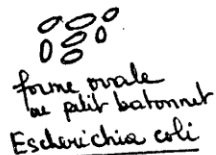 forme ovale
ou petit batonnet
Escherichia coli